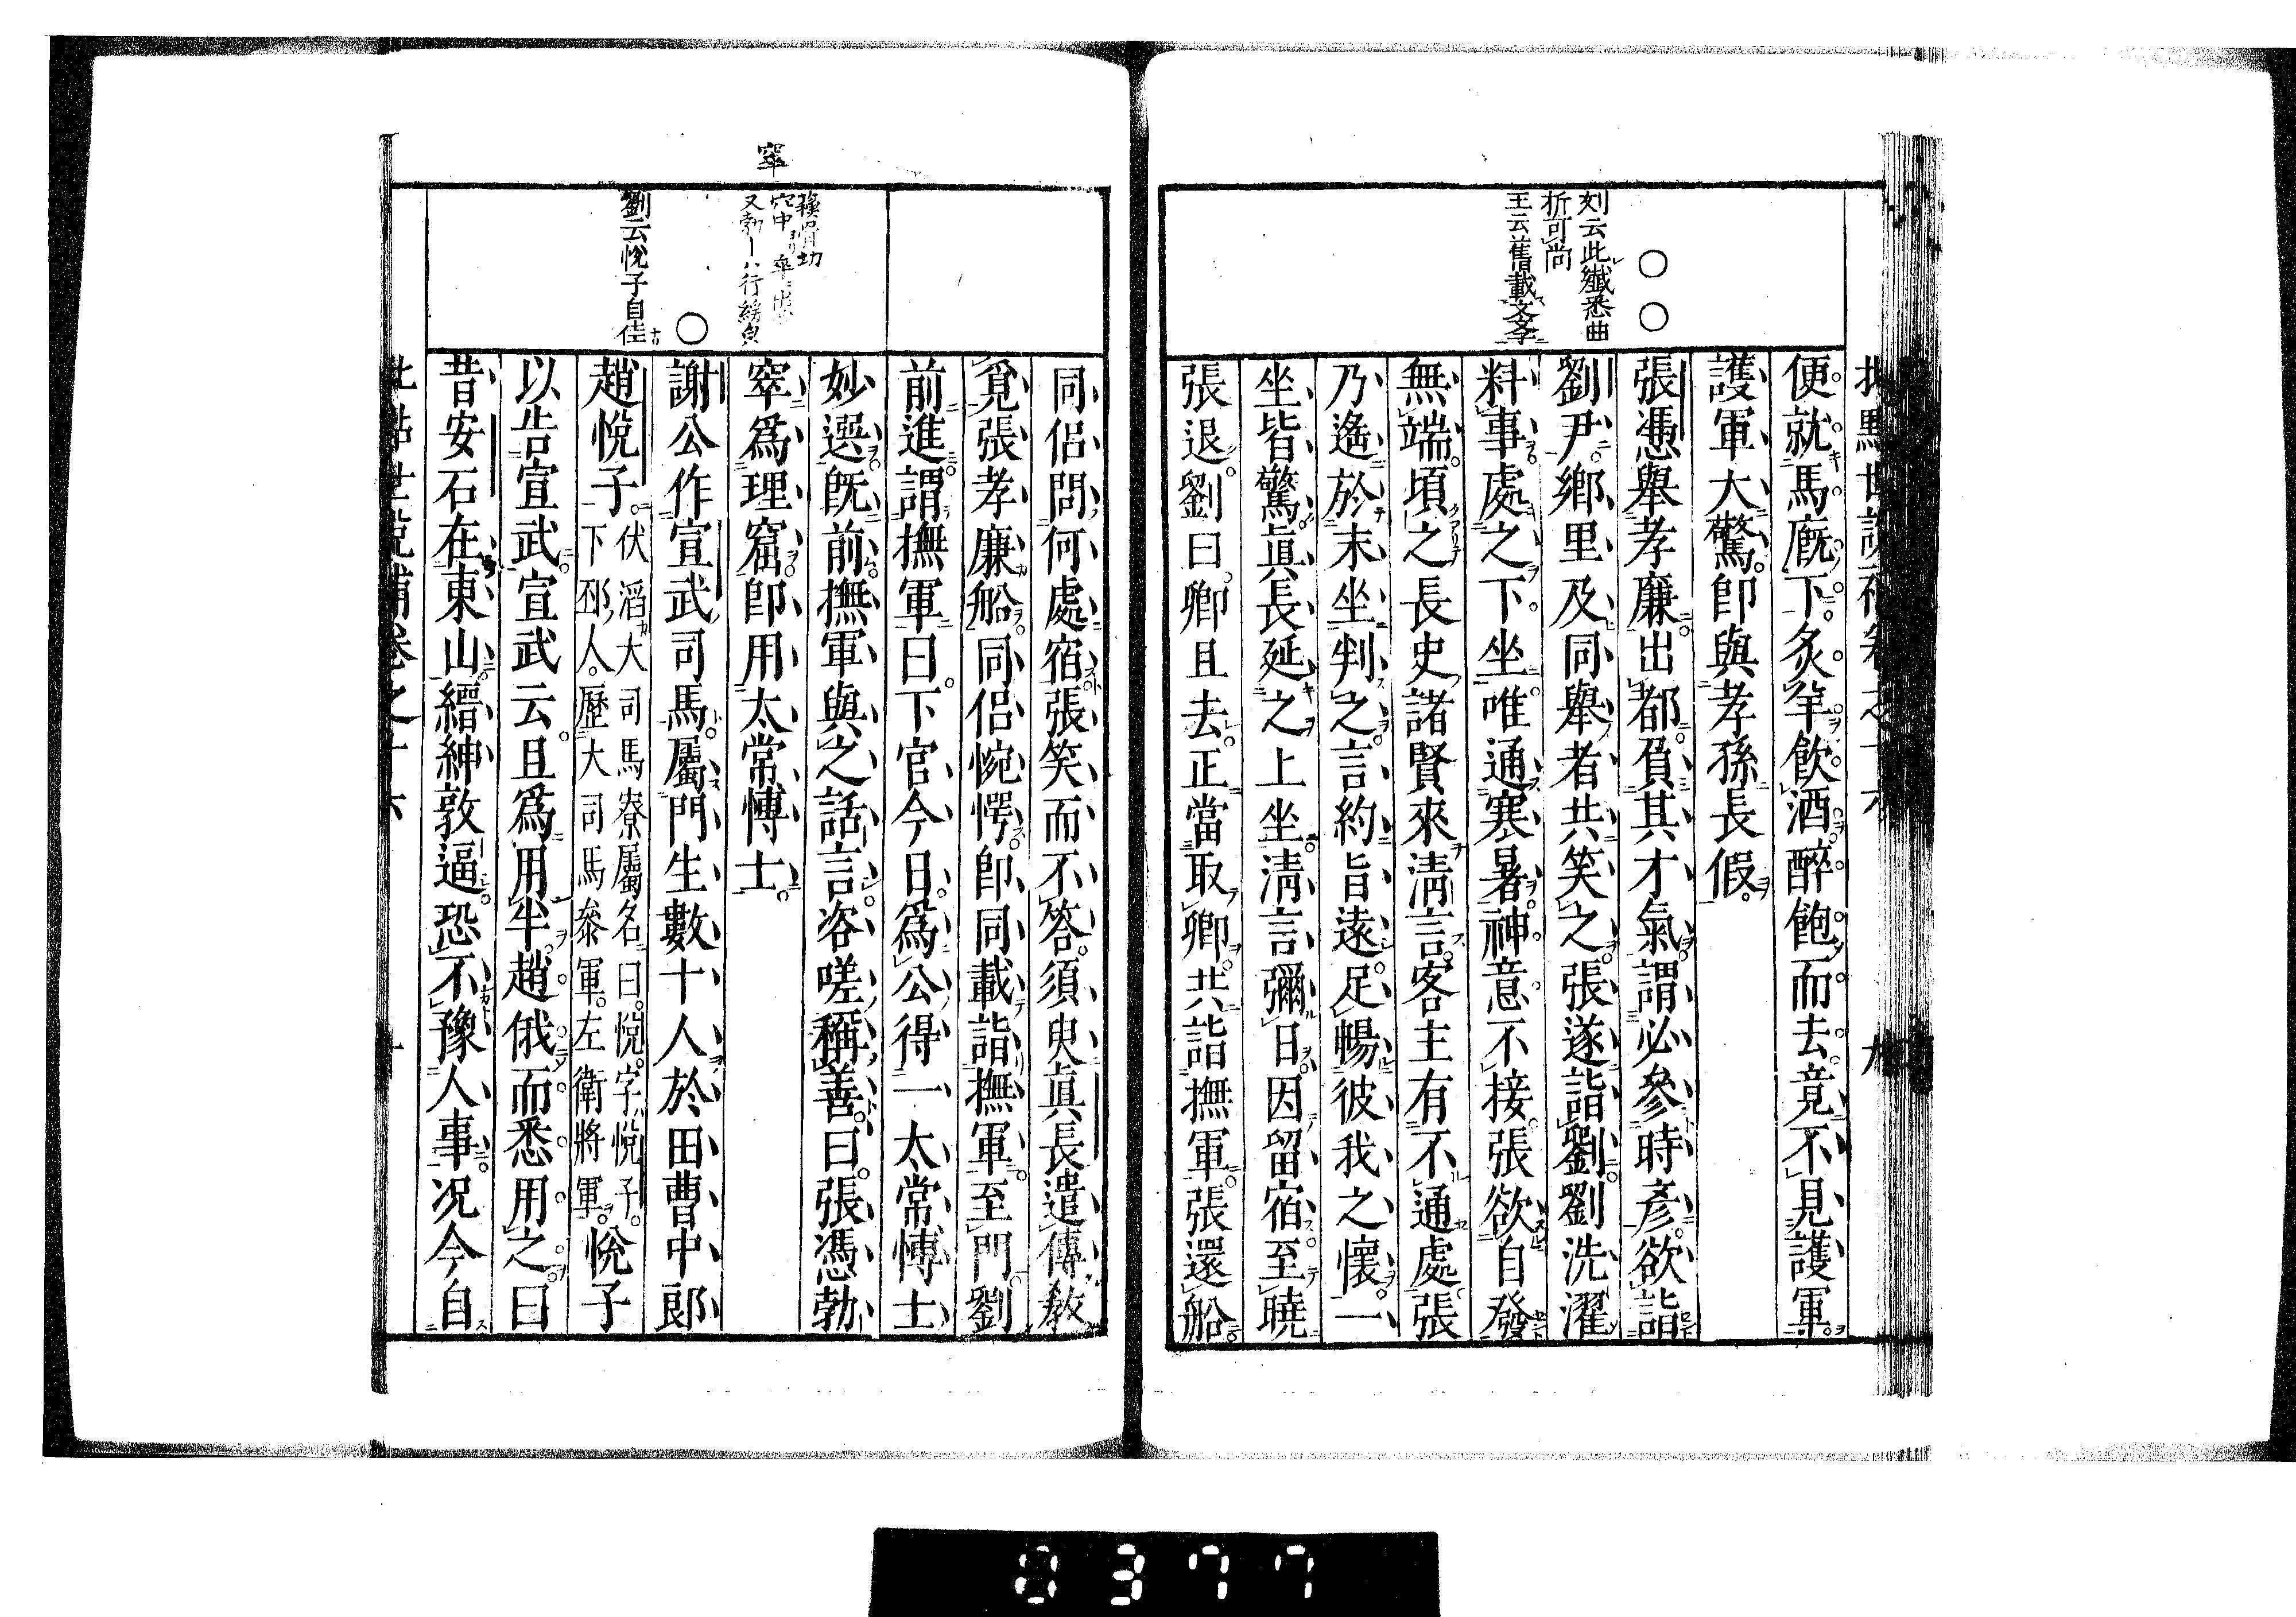 便就馬廐下炙羊飲酒醉飽而去竟不見護軍
護軍大驚卽與孝孫長假
張憑舉孝廉出都負其才氣謂必參時彥欲詣
劉尹鄉里及同舉者共笑之張遂詣劉劉洗濯
料事處之下坐唯通寒暑神意不接張欲自發
無端頃之長史諸賢來淸言客主有不通處張
乃遙於末坐判之言約旨遠足暢彼我之懷一
坐皆驚眞長延之上坐淸言彌日因留宿至曉
張退劉曰卿且去正當取卿共詣撫軍張還船
刘云此纖悉曲
折可尚
王云舊載文學
同侶問何處宿張笑而不答須臾眞長遣傳教
覓張孝廉船同侶惋愕卽同載詣撫軍至門劉
前進謂撫軍曰下官今日爲公得一太常愽士
妙選旣前撫軍與之話言咨嗟稱善曰張憑勃
窣爲理窟卽用太常愽士
謝公作宣武司馬屬門生數十人於田曹中郞
趙悅子伏滔大司馬寮屬名曰悅字悅子
下邳人歷大司馬參軍左衛將軍悅子
以告宣武宣武云且爲用半趙俄而悉用之曰
昔安石在東山縉紳敦逼恐不豫人事况今自
窣
劉云悅子自佳
0377